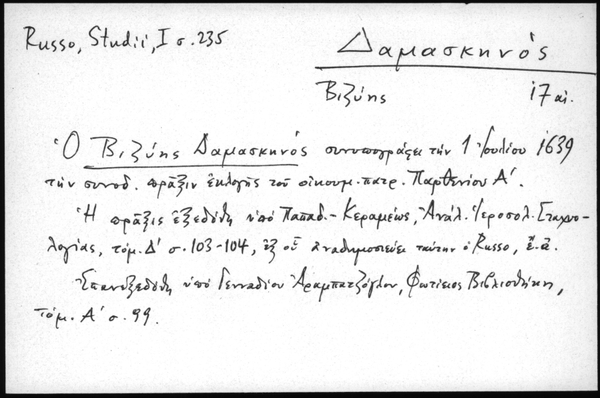 Russo, Studii, I σ. 235
Δαμασκηνός
Βιζύης 17 αἰ.
Ὁ Βιζύης Δαμασκηνός συνυπογράφει τήν 1 Ἰουλίου 1639
τήν συνοδ. πρᾶξιν ἐκλογῆς τοῦ οἰκουμ. πατρ. Παρθενίου Α΄.
Ἡ πρᾶξις ἐξεδόθη ὑπό Παπαδ.-Κεραμέως, Ἀνάλ. Ἱεροσολ. Σταχυο-
λογίας, τόμ. Δ΄ σ. 103-104, ἐξ οὗ ἀναδημοσιεύει ταύτην ὁ Russo, ἔ.ἀ.
Ἐπανεξεδόθη ὑπό Γενναδίου Ἀραμπατζόγλου, Φωτίειος Βιβλιοθήκη,
τόμ. Α΄ σ. 99.